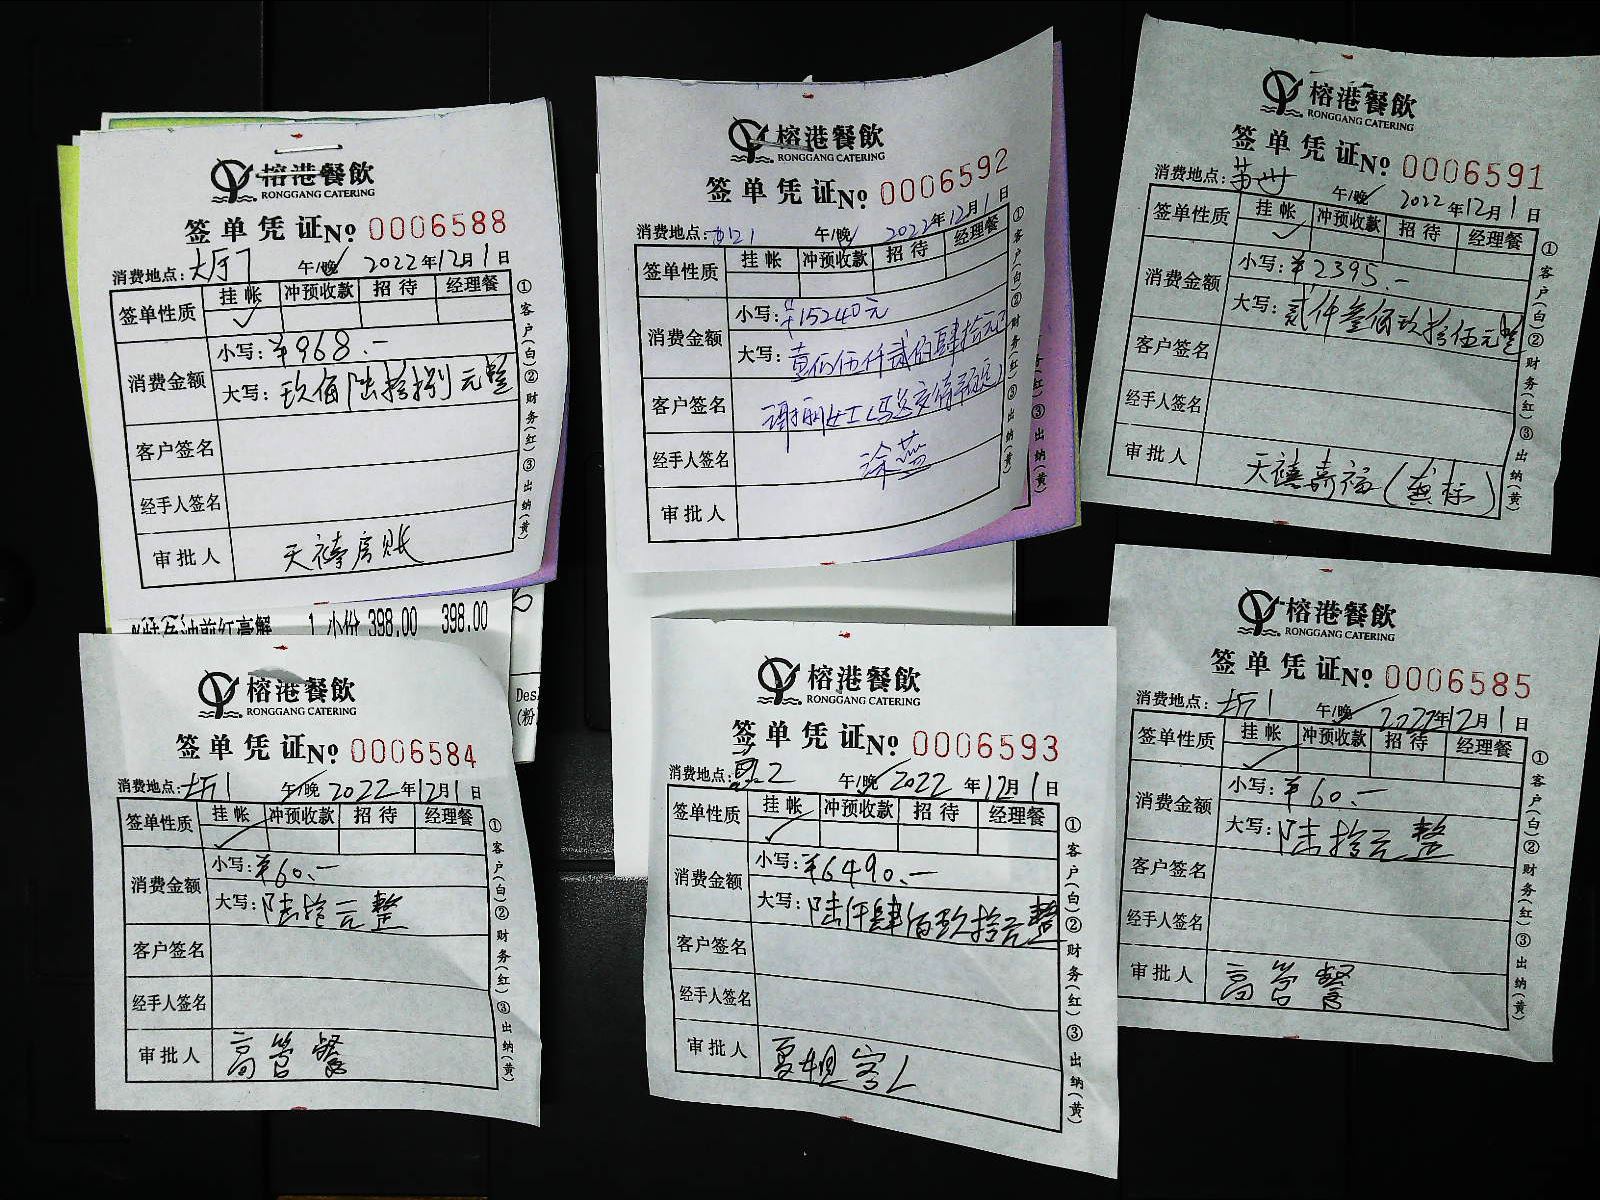 榕港餐飲
RONGGANG CATERING
签单凭证 No 0006588
消费地点：大厅7 午/晚 2022年12月1日
签单性质 挂帐 冲预收款 招待 经理餐
✓
消费金额 小写：¥968.-
大写：玖佰陆拾捌元整
客户签名
经手人签名
审批人 天禧房账
①客户(白)②财务(红)③出纳(黄)
1 小份 398.00 398.00
榕港餐飲
RONGGANG CATERING
签单凭证 No 0006592
消费地点： 午/晚 2022年12月1日
签单性质 挂帐 冲预收款 招待 经理餐
消费金额 小写：¥15240元
大写：壹 伍仟贰佰肆拾元
客户签名 谢 女士
经手人签名 涂燕
审批人
①客户(白)②财务(红)③出纳(黄)
③出纳(黄)
榕港餐飲
RONGGANG CATERING
签单凭证 No 0006591
消费地点： 午/晚 2022年12月1日
签单性质 挂帐 冲预收款 招待 经理餐
✓
消费金额 小写：¥2395.-
大写：贰仟叁佰玖拾伍元整
客户签名
经手人签名
审批人 天禧喜福
①客户(白)②财务(红)③出纳(黄)
榕港餐飲
RONGGANG CATERING
签单凭证 No 0006584
消费地点： 午/晚 2022年12月1日
签单性质 挂帐 冲预收款 招待 经理餐
✓
消费金额 小写：¥60.-
大写：陆拾元整
客户签名
经手人签名
审批人 高管餐
①客户(白)②财务(红)③出纳(黄)
榕港餐飲
RONGGANG CATERING
签单凭证 No 0006593
消费地点： 午/晚 2022年12月1日
签单性质 挂帐 冲预收款 招待 经理餐
✓
消费金额 小写：¥6490.-
大写：陆仟肆佰玖拾元整
客户签名
经手人签名
审批人 夏
①客户(白)②财务(红)③出纳(黄)
榕港餐飲
RONGGANG CATERING
签单凭证 No 0006585
消费地点： 午/晚 2022年12月1日
签单性质 挂帐 冲预收款 招待 经理餐
✓
消费金额 小写：¥60.-
大写：陆拾元整
客户签名
经手人签名
审批人 高管餐
①客户(白)②财务(红)③出纳(黄)